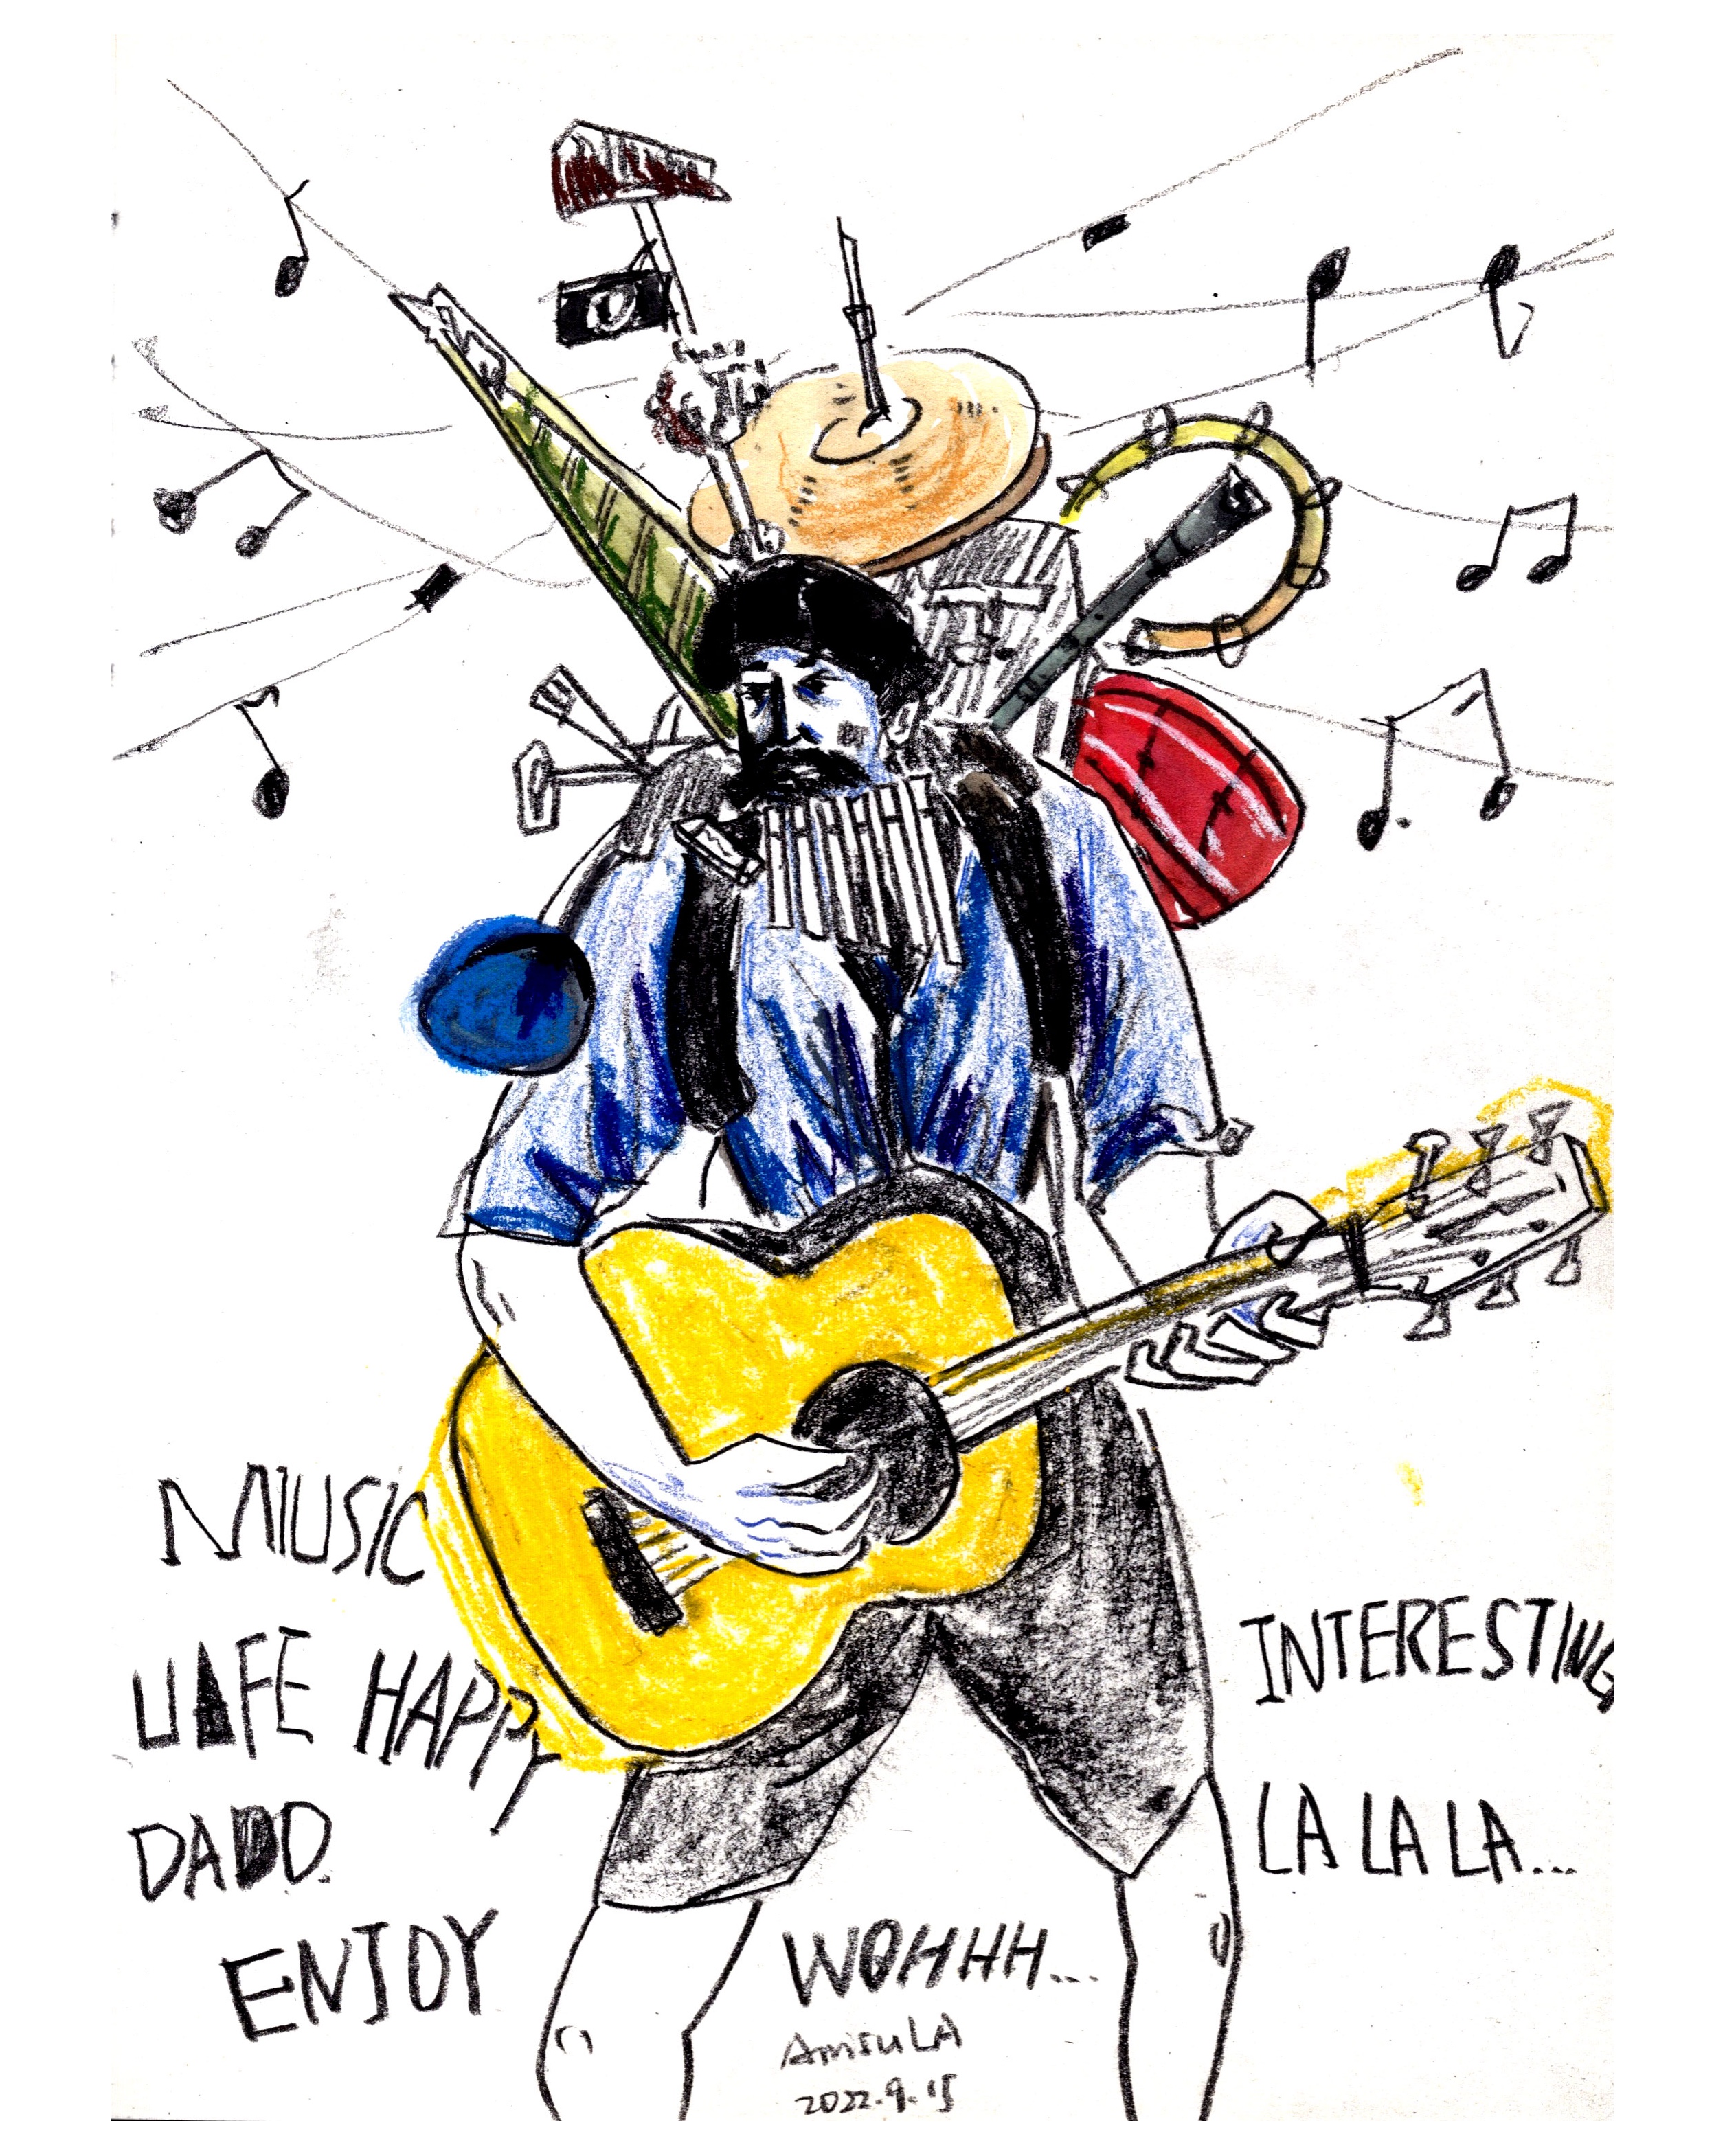 MUSIC
HAPPY
DADD.
ENJOY
INTERESTING
LA LA LA...
WOHHH...
2022.9.15